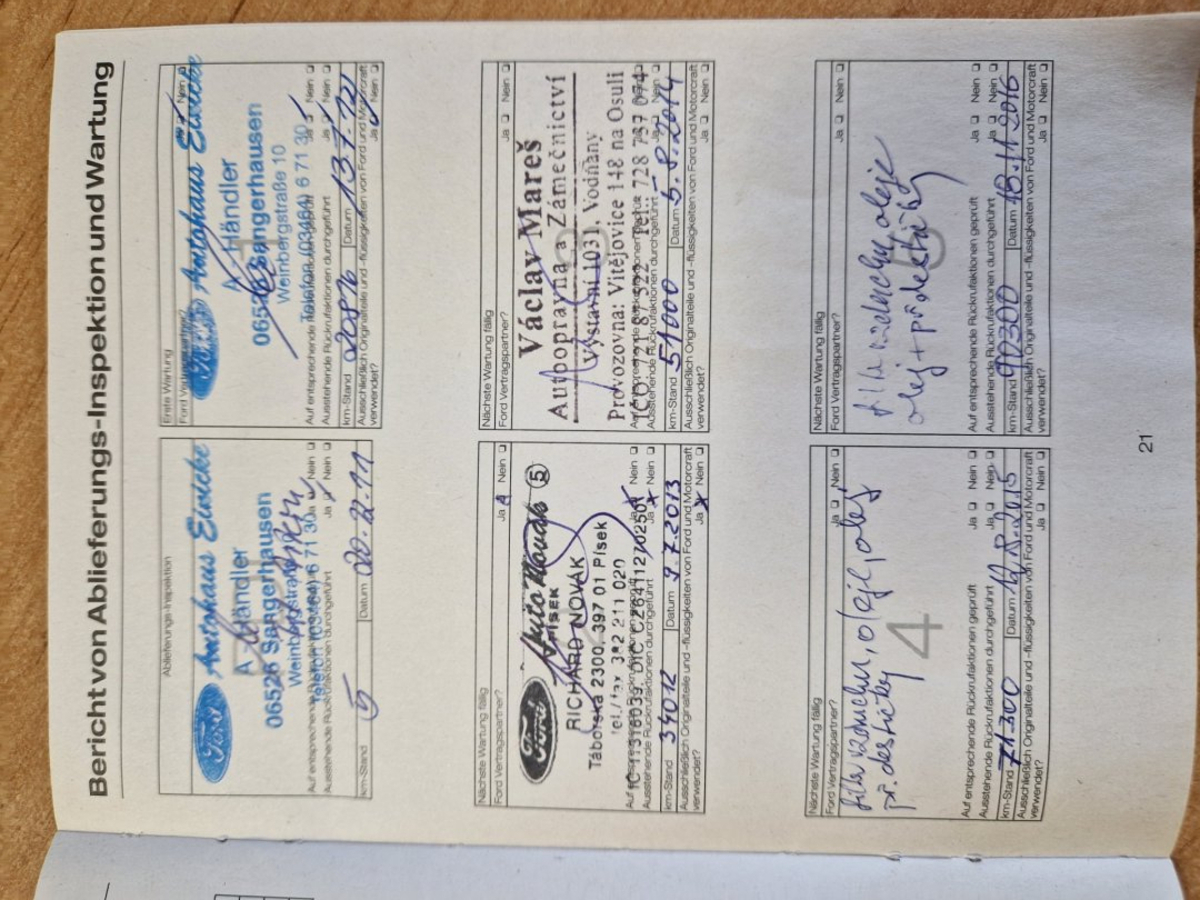 Bericht von Ablieferungs-Inspektion und Wartung
Ablieferungs-Inspektion
Ford
Autohaus Eiwicke
A Händler
06526 Sangerhausen
Weinbergstraße
Telefon (03464) 6 71 30
Auf entsprechende Rückrufaktionen geprüft Ja Nein
Ausstehende Rückrufaktionen durchgeführt Ja Nein
km-Stand 5 Datum
Erste Wartung
Ford Vertragspartner? Ja Nein
Ford
Autohaus Eiwicke
A Händler
06526 Sangerhausen
Weinbergstraße 10
Telefon (03464) 6 71 30
Auf entsprechende Rückrufaktionen geprüft Ja Nein
Ausstehende Rückrufaktionen durchgeführt Ja Nein
km-Stand 20876 Datum
Ausschließlich Originalteile und -flüssigkeiten von Ford und Motorcraft
verwendet? Ja Nein
Nächste Wartung fällig
Ford Vertragspartner? Ja Nein
Ford
Auto Novák 5
PÍSEK
RICHARD NOVÁK
Táborská 2300, 397 01 Písek
tel./fax 382 211 020
Ausstehende Rückrufaktionen durchgeführt Ja Nein
km-Stand 34012 Datum 9.7.2013
Ausschließlich Originalteile und -flüssigkeiten von Ford und Motorcraft
verwendet? Ja Nein
Nächste Wartung fällig
Ford Vertragspartner? Ja Nein
Václav Mareš
Autoopravna a Zámečnictví
Výstavní 1031, Vodňany
Provozovna: Vitějovice 148 na Osuli
Tel.: 728 737 074
Ausstehende Rückrufaktionen durchgeführt Ja Nein
km-Stand 51000 Datum 5.8.2014
Ausschließlich Originalteile und -flüssigkeiten von Ford und Motorcraft
verwendet? Ja Nein
Nächste Wartung fällig
Ford Vertragspartner? Ja Nein
filtr vzduchu, oleje, olej
př. destičky
4
Auf entsprechende Rückrufaktionen geprüft Ja Nein
Ausstehende Rückrufaktionen durchgeführt Ja Nein
km-Stand 71300 Datum
Ausschließlich Originalteile und -flüssigkeiten von Ford und Motorcraft
verwendet? Ja Nein
Nächste Wartung fällig
Ford Vertragspartner? Ja Nein
filtr vzduchu, oleje
olej + př. destičky
Auf entsprechende Rückrufaktionen geprüft Ja Nein
Ausstehende Rückrufaktionen durchgeführt Ja Nein
km-Stand 90300 Datum 18.11.2016
Ausschließlich Originalteile und -flüssigkeiten von Ford und Motorcraft
verwendet? Ja Nein
21